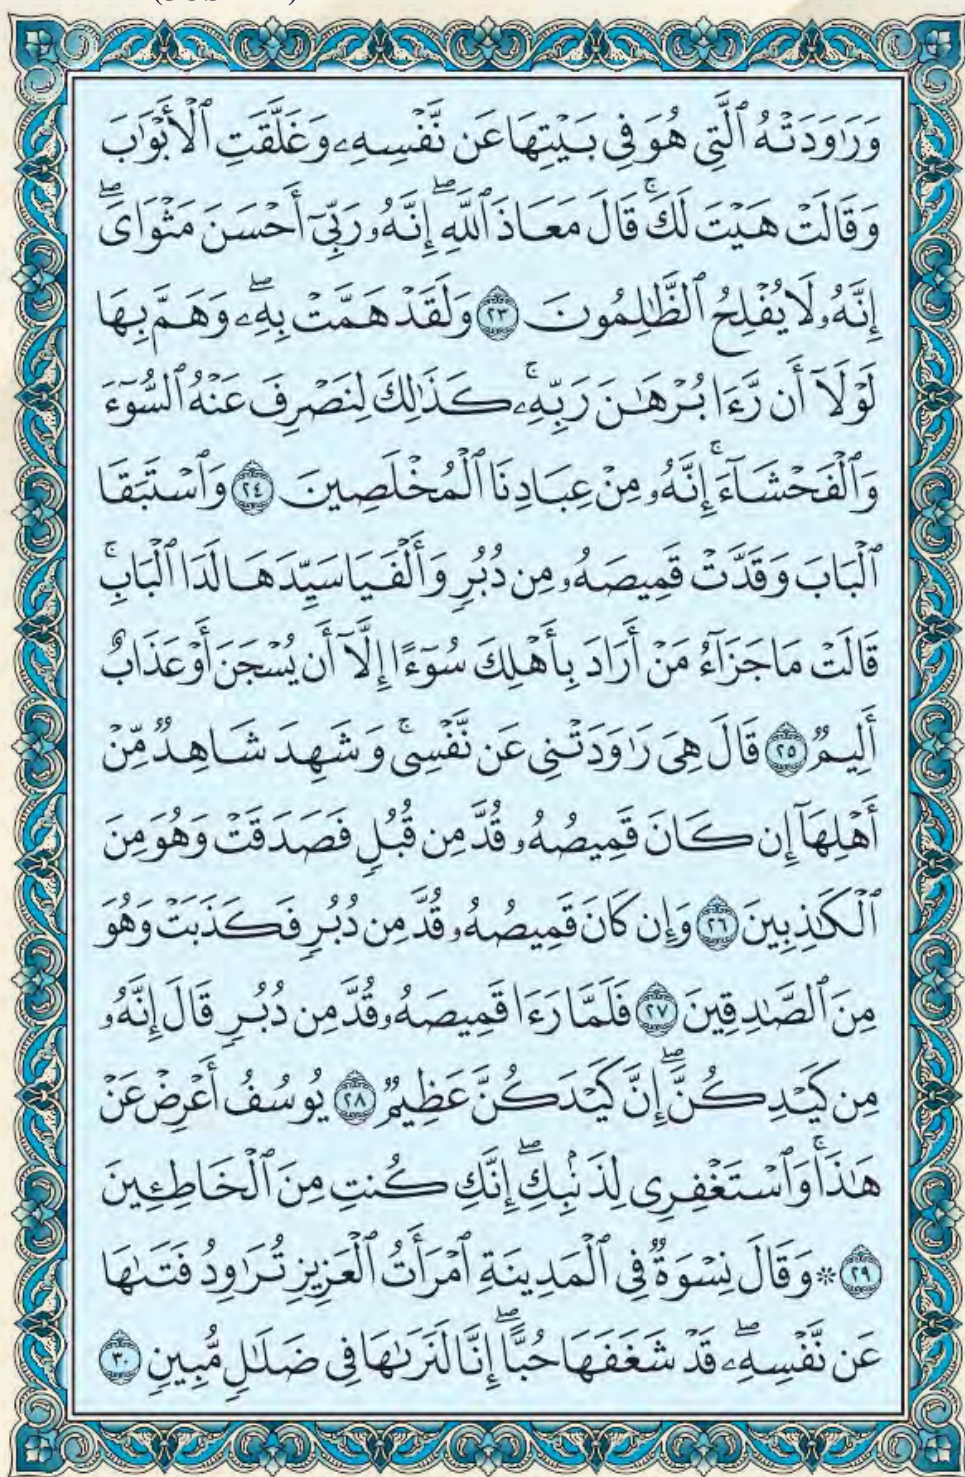 وَرَٰوَدَتْهُ ٱلَّتِى هُوَ فِى بَيْتِهَا عَن نَّفْسِهِۦ وَغَلَّقَتِ ٱلْأَبْوَٰبَ
وَقَالَتْ هَيْتَ لَكَ ۚ قَالَ مَعَاذَ ٱللَّهِ ۖ إِنَّهُۥ رَبِّىٓ أَحْسَنَ مَثْوَاىَ ۖ
إِنَّهُۥ لَا يُفْلِحُ ٱلظَّٰلِمُونَ ٢٣ وَلَقَدْ هَمَّتْ بِهِۦ ۖ وَهَمَّ بِهَا
لَوْلَآ أَن رَّءَا بُرْهَٰنَ رَبِّهِۦ ۚ كَذَٰلِكَ لِنَصْرِفَ عَنْهُ ٱلسُّوٓءَ
وَٱلْفَحْشَآءَ ۚ إِنَّهُۥ مِنْ عِبَادِنَا ٱلْمُخْلَصِينَ ٢٤ وَٱسْتَبَقَا
ٱلْبَابَ وَقَدَّتْ قَمِيصَهُۥ مِن دُبُرٍ وَأَلْفَيَا سَيِّدَهَا لَدَا ٱلْبَابِ ۚ
قَالَتْ مَا جَزَآءُ مَنْ أَرَادَ بِأَهْلِكَ سُوٓءًا إِلَّآ أَن يُسْجَنَ أَوْ عَذَابٌ
أَلِيمٌ ٢٥ قَالَ هِىَ رَٰوَدَتْنِى عَن نَّفْسِى ۚ وَشَهِدَ شَاهِدٌ مِّنْ
أَهْلِهَآ إِن كَانَ قَمِيصُهُۥ قُدَّ مِن قُبُلٍ فَصَدَقَتْ وَهُوَ مِنَ
ٱلْكَٰذِبِينَ ٢٦ وَإِن كَانَ قَمِيصُهُۥ قُدَّ مِن دُبُرٍ فَكَذَبَتْ وَهُوَ
مِنَ ٱلصَّٰدِقِينَ ٢٧ فَلَمَّا رَءَا قَمِيصَهُۥ قُدَّ مِن دُبُرٍ قَالَ إِنَّهُۥ
مِن كَيْدِكُنَّ ۖ إِنَّ كَيْدَكُنَّ عَظِيمٌ ٢٨ يُوسُفُ أَعْرِضْ عَنْ
هَٰذَا ۚ وَٱسْتَغْفِرِى لِذَنۢبِكِ ۖ إِنَّكِ كُنتِ مِنَ ٱلْخَاطِـِٔينَ
٢٩ * وَقَالَ نِسْوَةٌ فِى ٱلْمَدِينَةِ ٱمْرَأَتُ ٱلْعَزِيزِ تُرَٰوِدُ فَتَىٰهَا
عَن نَّفْسِهِۦ ۖ قَدْ شَغَفَهَا حُبًّا ۖ إِنَّا لَنَرَىٰهَا فِى ضَلَٰلٍ مُّبِينٍ ٣٠